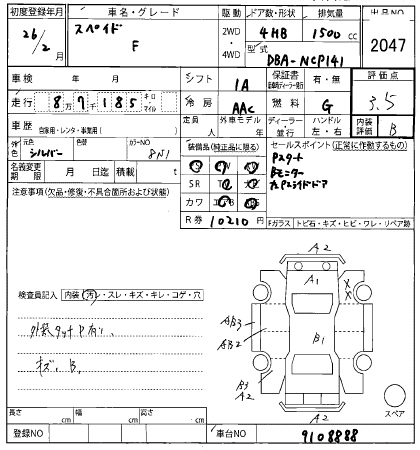 初度登録年月 車名・グレード 駆動 ドア数・形状 排気量 出品NO
26/2月 スペイド F 2WD・4WD 4HB 1500cc 2047
型式 DBA-NCP141
車検 年 月 シフト IA 保証書 有・無 評価点
走行 8万7千185 キロ・マイル 冷房 AAC 燃料 G 3.5
車歴 自家用・レンタ・事業用( ) 定員 人 外車モデル ディーラー・並行 ハンドル 左・右 内装評価 B
外色 元色 シルバー 色替 カラーNO 8N1 装備品(純正品に限る) セールスポイント(正常に作動するもの)
名義変更 月 日迄 積載 t SR Pスタート
注意事項(欠品・修復・不具合箇所および状態) カワ Bモニター
R券 10210円 左Pスライドドア
Fガラス トビ石・キズ・ヒビ・ワレ・リペア跡
A2
A1
XX
検査員記入 内装(汚レ・スレ・キズ・キレ・コゲ・穴)
AB3
AB2
B1
外装タッチP有り、
キズ、B、
B3
A2
A2
スペア
長さ cm 幅 cm 高さ cm
登録NO 車台NO 9108888